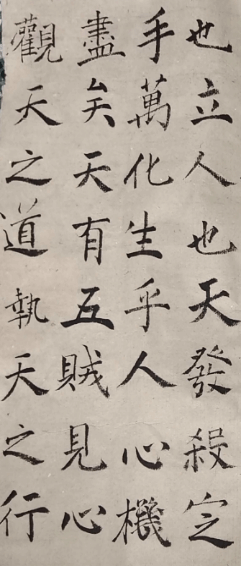 觀天之道執天之行
盡矣天有五賊見心
手萬化生乎人心機
也立人也天發殺定